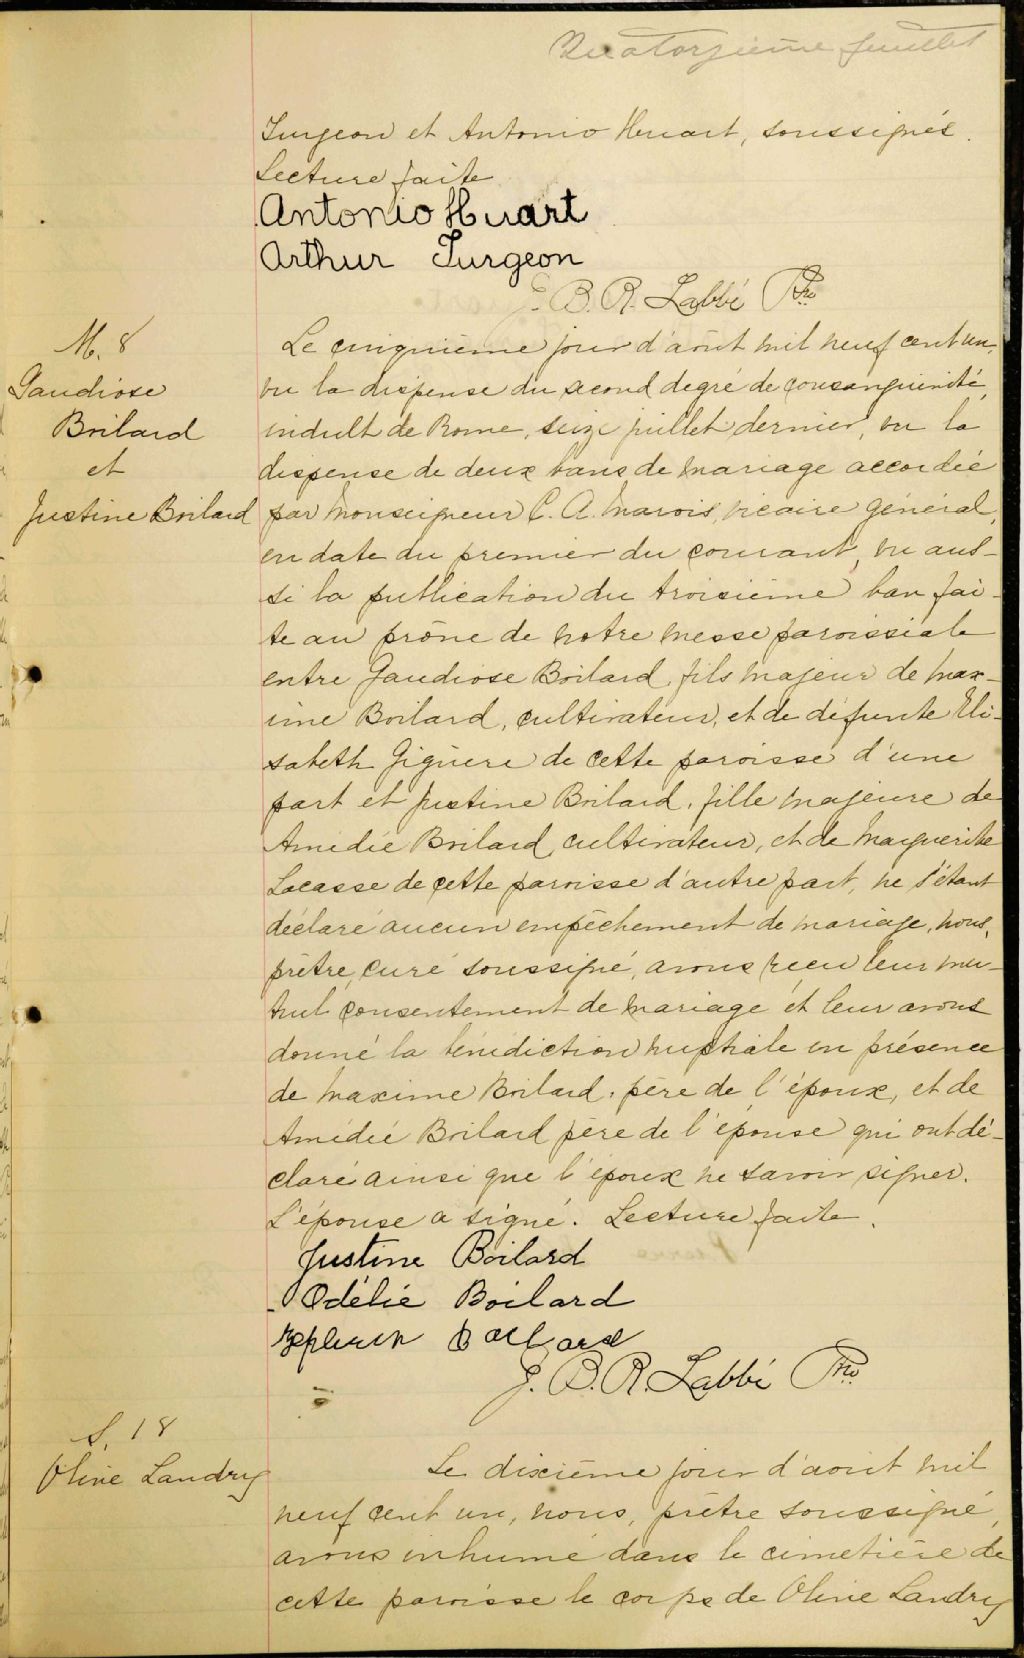 Quatorzième feuillet
Turgeon et Antonio Huart, soussignés.
Lecture faite
Antonio Huart
Arthur Turgeon
J. B. R. Labbé Ptre
M. 8
Gaudiose
Boilard
et
Justine Boilard
Le cinquième jour d'août mil neuf cent un,
vu la dispense du second degré de consanguinité,
indult de Rome, seize juillet dernier, vu la
dispense de deux bans de mariage accordée
par Monseigneur C. A. Marois, vicaire général,
en date du premier du courant, vu aus-
si la publication du troisième ban fai-
te au prône de notre messe paroissiale
entre Gaudiose Boilard, fils majeur de Max-
ime Boilard, cultivateur, et de défunte Eli-
sabeth Giguère de cette paroisse d'une
part et Justine Boilard, fille majeure de
Amédée Boilard cultivateur, et de Marguerite
Lacasse de cette paroisse d'autre part, ne s'étant
déclaré aucun empêchement de mariage, nous,
prêtre, curé soussigné, avons reçu leur mu-
tuel consentement de mariage et leur avons
donné la bénédiction nuptiale en présence
de Maxime Boilard, père de l'époux, et de
Amédée Boilard père de l'épouse qui ont dé-
claré ainsi que l'époux ne savoir signer.
L'épouse a signé. Lecture faite.
Justine Boilard
Odélie Boilard
Zepherin Boilard
J. B. R. Labbé Ptre
S. 18
Olive Landry
Le dixième jour d'août mil
neuf cent un, nous, prêtre soussigné,
avons inhumé dans le cimetière de
cette paroisse le corps de Olive Landry